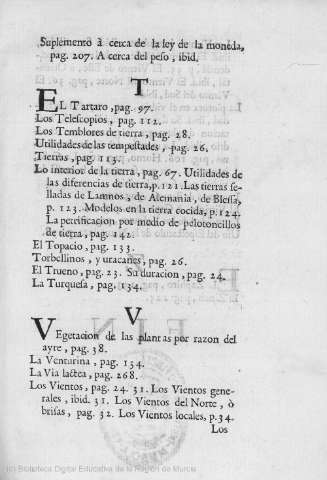 Suplemento à cerca de la ley de la moneda,
pag. 207. A cerca del peso, ibid.
T
EL Tartaro, pag. 97.
Los Telescopios, pag. 112.
Los Temblores de tierra, pag. 28.
Utilidades de las tempestades, pag. 26.
Tierras, pag. 113.
Lo interior de la tierra, pag. 67. Utilidades de
las diferencias de tierra, p. 121. Las tierras se-
lladas de Lamnos, de Alemania, de Blessa,
p. 123. Modelos en la tierra cocida, p. 124.
La petrificacion por medio de pelotoncillos
de tierra, pag. 142.
El Topacio, pag. 133.
Torbellinos, y uracanes, pag. 26.
El Trueno, pag. 23. Su duracion, pag. 24.
La Turquesa, pag. 134.
V
VEgetacion de las plantas por razon del
ayre, pag. 38.
La Venturina, pag. 134.
La Via lactea, pag. 268.
Los Vientos, pag. 24. 31. Los Vientos gene-
rales, ibid. 31. Los Vientos del Norte, ò
brisas, pag. 32. Los Vientos locales, p. 34.
Los
(c) Biblioteca Digital Educativa de la Región de Murcia